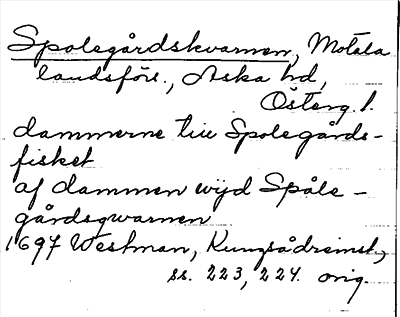 Spolegårdskvarnen, Motala
landsförs., Aska hd,
Österg. l.
dammerne till Spolegårds-
fisket
af dammen wijd Spåle-
gårdsqwarnen
1697 Westman, Kungsådreinst.,
ss. 223, 224. orig.